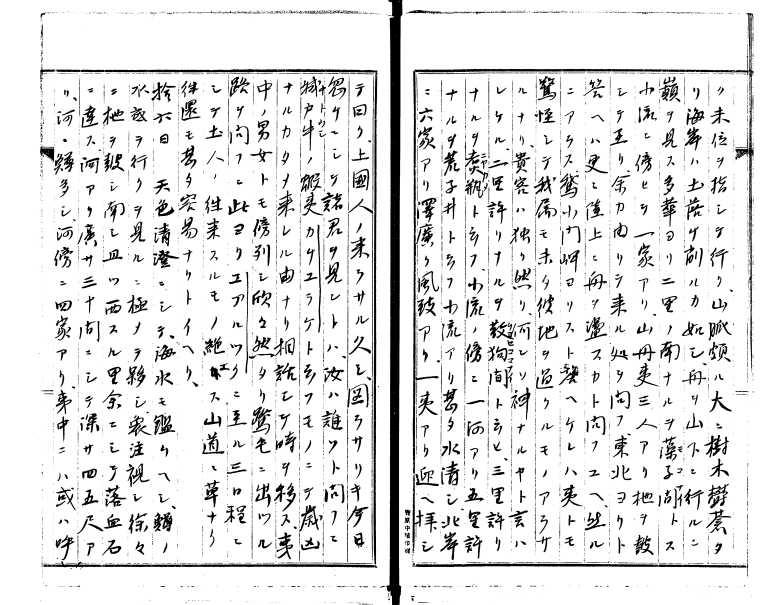 ク未位ヲ指シテ行ク、山脈頗ル大ニ樹木欝蒼タ
リ海岸ハ土落ヲ削ルカ如シ、舟ヲ山下ニ行ルニ
巓ヲ見ス多華ヨリ二里ノ南ナルヲ藻子間トス
小流ニ傍ヒテ一家アリ、山丹夷三人アリ杝ヲ鼓
シテ至リ余カ由リテ来ル処ヲ問フ東北ヨリト
答ヘハ更ニ陸上ニ舟ヲ盪スカト問フユヘ、然ル
ニアラス鵞小門岬ヨリスト答ヘケレハ夷トモ
驚怪シテ我属モ未タ彼地ヲ過クルモノアラサ
ルナリ、貴客ハ独リ然リ、何レソ神ナルヤト言ハ
レケル、二里許リナルヲ数狗間ト云ヒ、三里許リ
ナルヲ 瓶ト云フ、小流ノ傍ニ一河アリ五里許
ナルヲ荒子井ト云フ小流アリ甚タ水清シ北岸
ニ六家アリ澤廣ク風致アリ、一夷アリ迎ヘ拝シ
テ曰ク、上國人ノ来ラサル久シ、図ラサリキ今日
忽々ニシテ諸君ヲ見ントハ、汝ハ誰ソト問フニ
ノ 夷カヲエラケト云フモノニテ歳凶
ナルカタメ来レル由ナリ相話シテ時ヲ移ス、夷
中ノ男女トモ傍列シ欣々然タリ鶩屯ニ出ツル
路ヲ問フニ此ヨリエアルツクニ至ル三日程ニ
シテ土人往来スルモノ絶ヘス山道ニ草ナリ
往還モ甚タ容易ナリトイヘリ、
拾六日 天色清澄ニシテ、海水モ鑑クヘシ、鱒ノ
水底ヲ行クヲ見ルニ極メテ夥シ衆注視シ徐々
ニ杝ヲ鼓シ南シ且ツ西スル里余ニシテ落血石
ニ達ス河アリ廣サ三十間ニシテ深サ四五尺ア
リ、河ニ鱒多シ、河傍ニ四家アリ、夷中ニハ或ハ呼